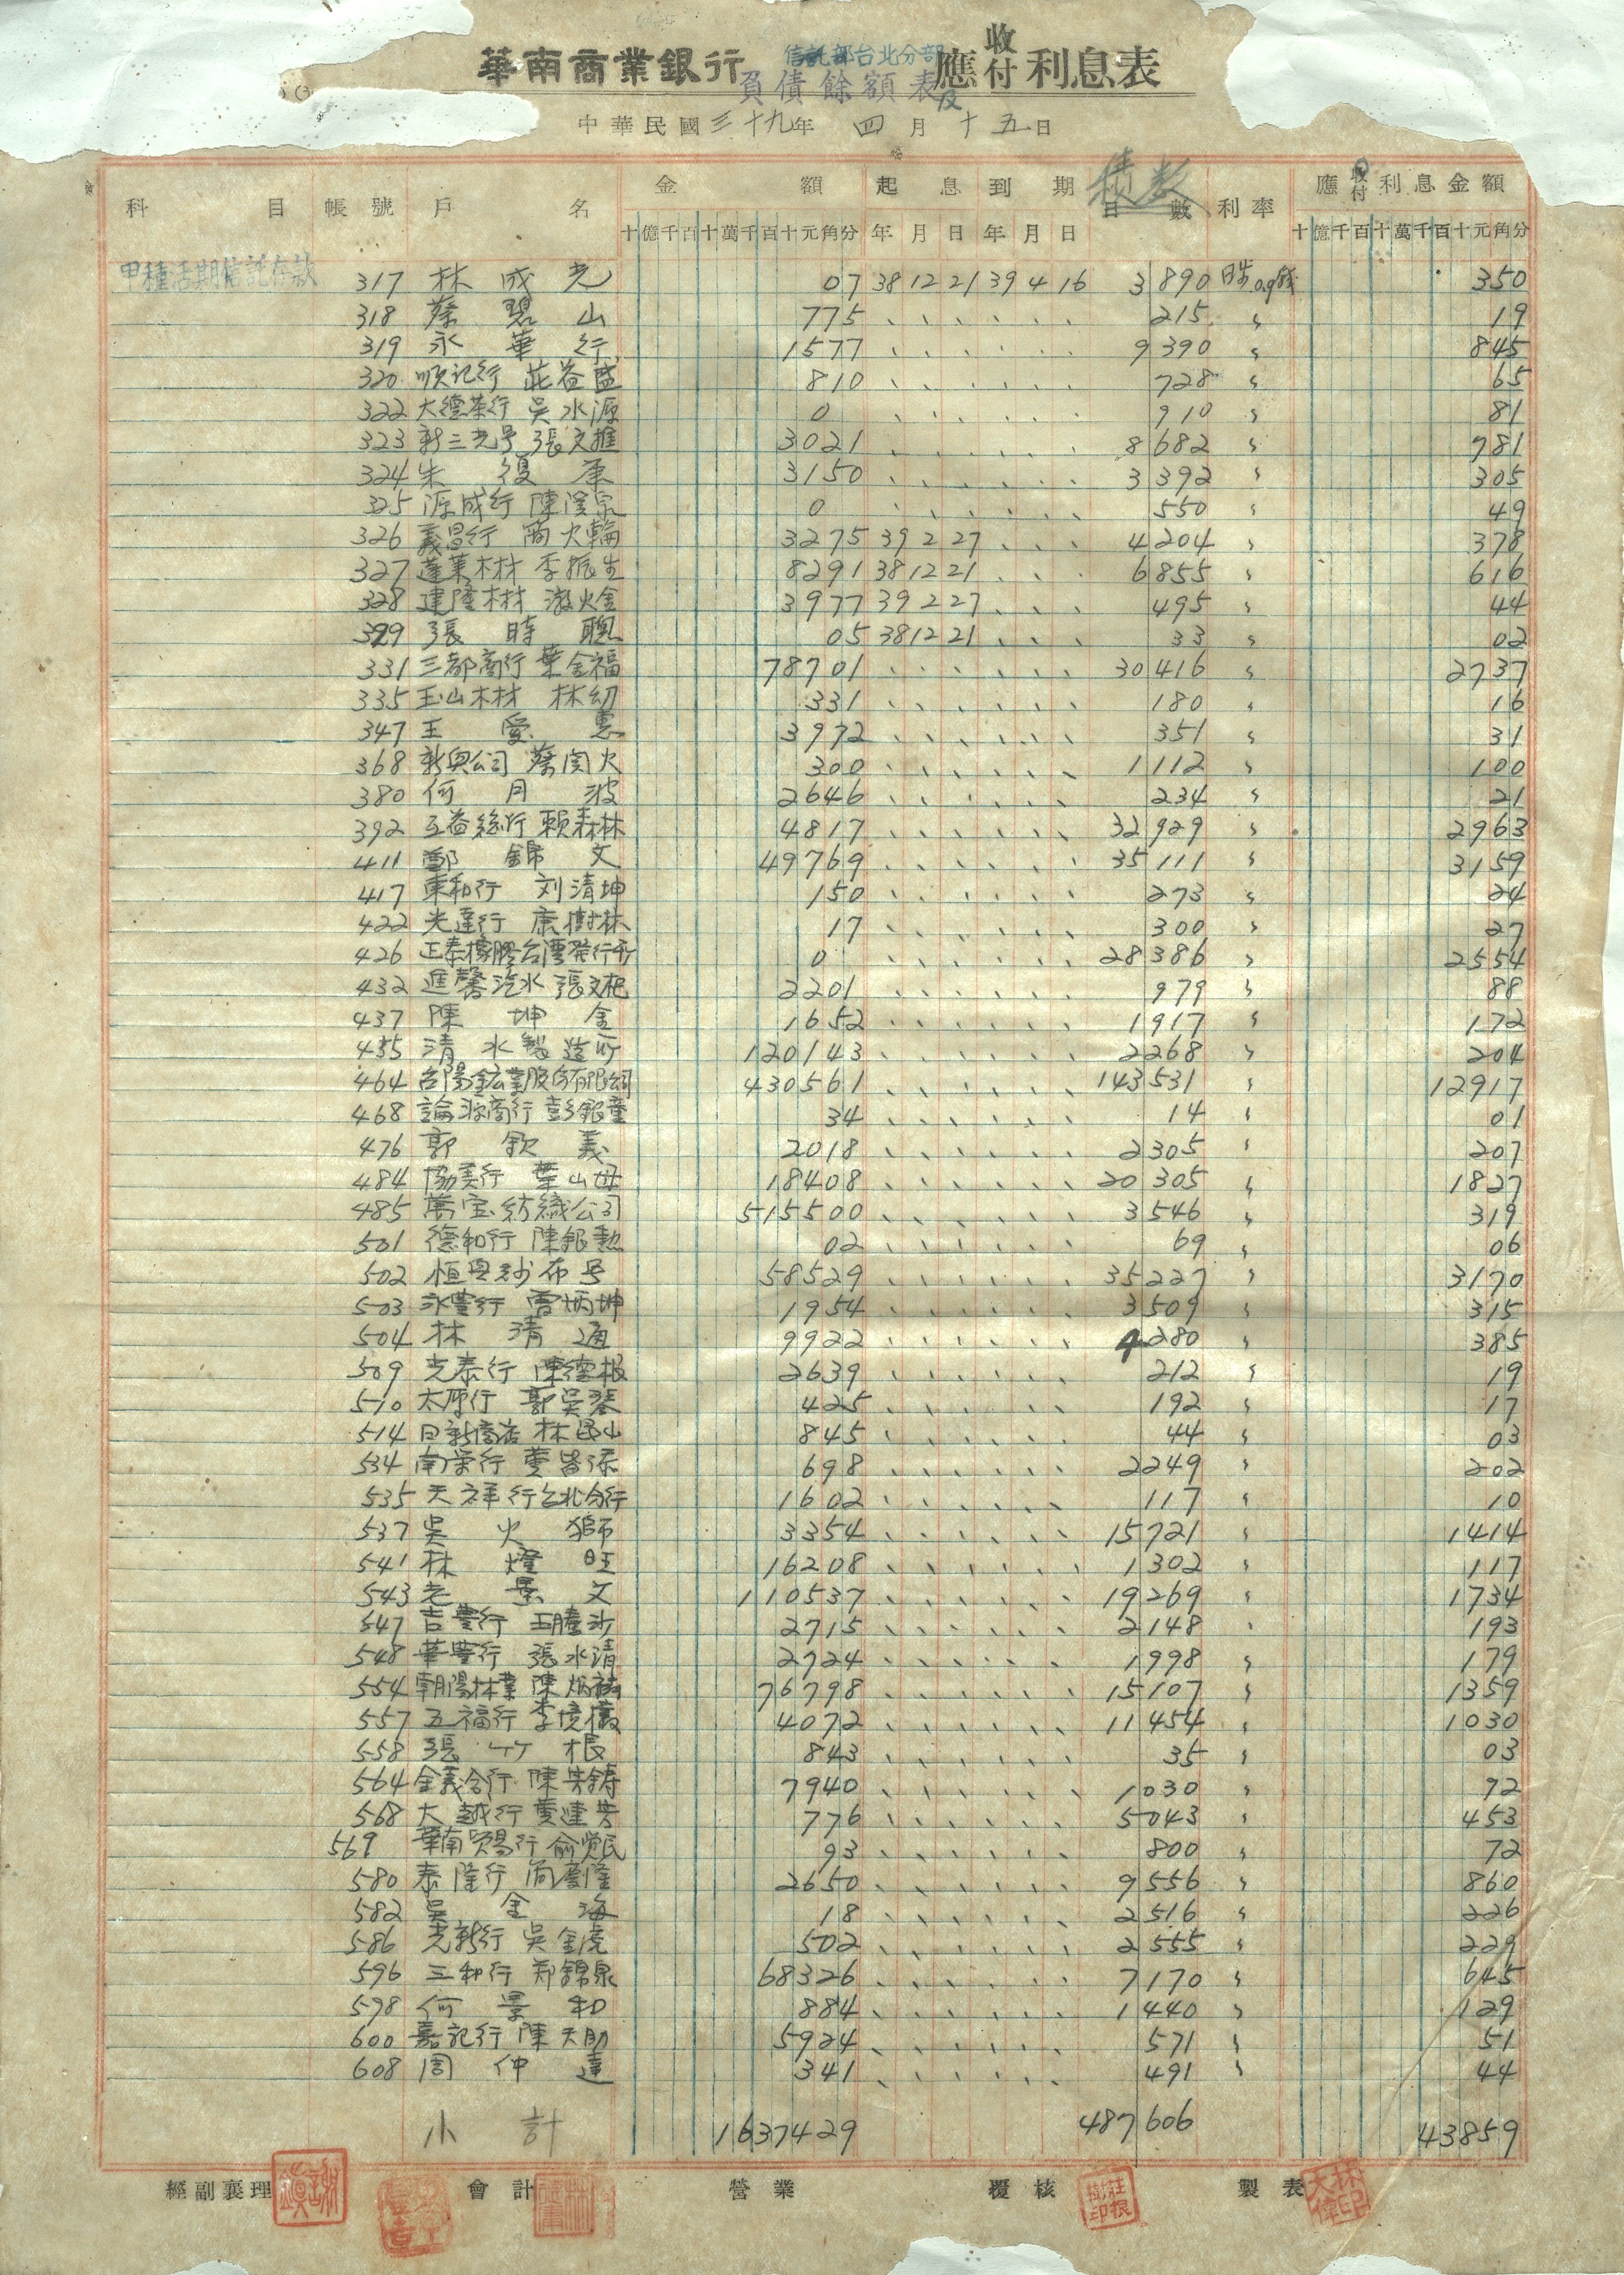 華南商業銀行 信託部台北分部 應收付利息表
負債餘額表及
中華民國三十九年 四月十五日
科目 帳號 戶名 金額 起息 到期 積數 日數 利率 應收付利息金額
十億千百十萬千百十元角分 年月日年月日 十億千百十萬千百十元角分
甲種活期信託存款 317 林成光 07 38 12 21 39 4 16 3890 日歩0.9錢 350
318 蔡碧山 775 、、、、、、 215 〃 19
319 永華行 1577 、、、、、、 9390 〃 845
320 順記行 莊益盛 810 、、、、、、 728 〃 65
322 大德茶行 吳水源 0 、、、、、、 910 〃 81
323 新三光号 張文推 3021 、、、、、、 8682 〃 781
324 朱復康 3150 、、、、、、 3392 〃 305
325 源成行 陳溪宗 0 、、、、、、 550 〃 49
326 義昌行 簡火輪 3275 39 2 27 、、、 4204 〃 378
327 蓬萊木材 李振生 8291 38 12 21 、、、 6855 〃 616
328 建隆木材 火金 3977 39 2 27 、、、 495 〃 44
329 張時聰 05 38 12 21 、、、 33 〃 02
331 三都商行 葉金福 78701 、、、、、、 30416 〃 2737
335 玉山木材 林幼 331 、、、、、、 180 〃 16
347 王愛惠 3972 、、、、、、 351 〃 31
368 新興公司 蔡闊火 300 、、、、、、 1112 〃 100
380 何月波 2646 、、、、、、 234 〃 21
392 互益行 賴森林 4817 、、、、、、 32929 〃 2963
411 鄭錦文 49769 、、、、、、 35111 〃 3159
417 東和行 刘清坤 150 、、、、、、 273 〃 24
422 光達行 康樹林 17 、、、、、、 300 〃 27
426 正泰橡膠台灣發行所 0 、、、、、、 28386 〃 2554
432 進馨汽水 張文杞 2201 、、、、、、 979 〃 88
437 陳坤金 1652 、、、、、、 1917 〃 172
455 清水製造所 120143 、、、、、、 2268 〃 204
464 台陽鉱業股份有限公司 430561 、、、、、、 143531 〃 12917
468 論源商行 彭銀童 34 、、、、、、 14 〃 01
476 郭欽義 2018 、、、、、、 2305 〃 207
484 協美行 葉山母 18408 、、、、、、 20305 〃 1827
485 萬宝紡織公司 515500 、、、、、、 3546 〃 319
501 德和行 陳銀勲 02 、、、、、、 69 〃 06
502 恒興紗布号 58529 、、、、、、 35227 〃 3170
503 永豐行 曾炳坤 1954 、、、、、、 3509 〃 315
504 林清通 9922 、、、、、、 4280 〃 385
509 光泰行 陳德根 2639 、、、、、、 212 〃 19
510 太原行 郭吳琴 425 、、、、、、 192 〃 17
514 日新商店 林昆山 845 、、、、、、 44 〃 03
534 南榮行 添 698 、、、、、、 2249 〃 202
535 天祥行台北分行 1602 、、、、、、 117 〃 10
537 吳火獅 3354 、、、、、、 15721 〃 1414
541 林燈旺 16208 、、、、、、 1302 〃 117
543 老景文 110537 、、、、、、 19269 〃 1734
547 吉豐行 王 2715 、、、、、、 2148 〃 193
548 華豐行 張水清 2724 、、、、、、 1998 〃 179
554 朝陽林業 陳炳 76798 、、、、、、 15107 〃 1359
557 五福行 李境 4072 、、、、、、 11454 〃 1030
558 張竹根 843 、、、、、、 35 〃 03
564 金義合行 陳芳鑄 7940 、、、、、、 1030 〃 92
568 大越行 黄連芳 776 、、、、、、 5043 〃 453
569 華南貿易行 俞覺民 93 、、、、、、 800 〃 72
580 泰隆行 簡慶隆 2650 、、、、、、 9556 〃 860
582 吳金海 18 、、、、、、 2516 〃 226
586 光新行 吳金虎 502 、、、、、、 2555 〃 229
596 三和行 郑錦泉 68326 、、、、、、 7170 〃 645
598 何景和 884 、、、、、、 1440 〃 129
600 嘉記行 陳天助 5924 、、、、、、 571 〃 51
608 周仲達 341 、、、、、、 491 〃 44
小計 1637429 487606 43859
經副襄理 會計 營業 覆核 製表